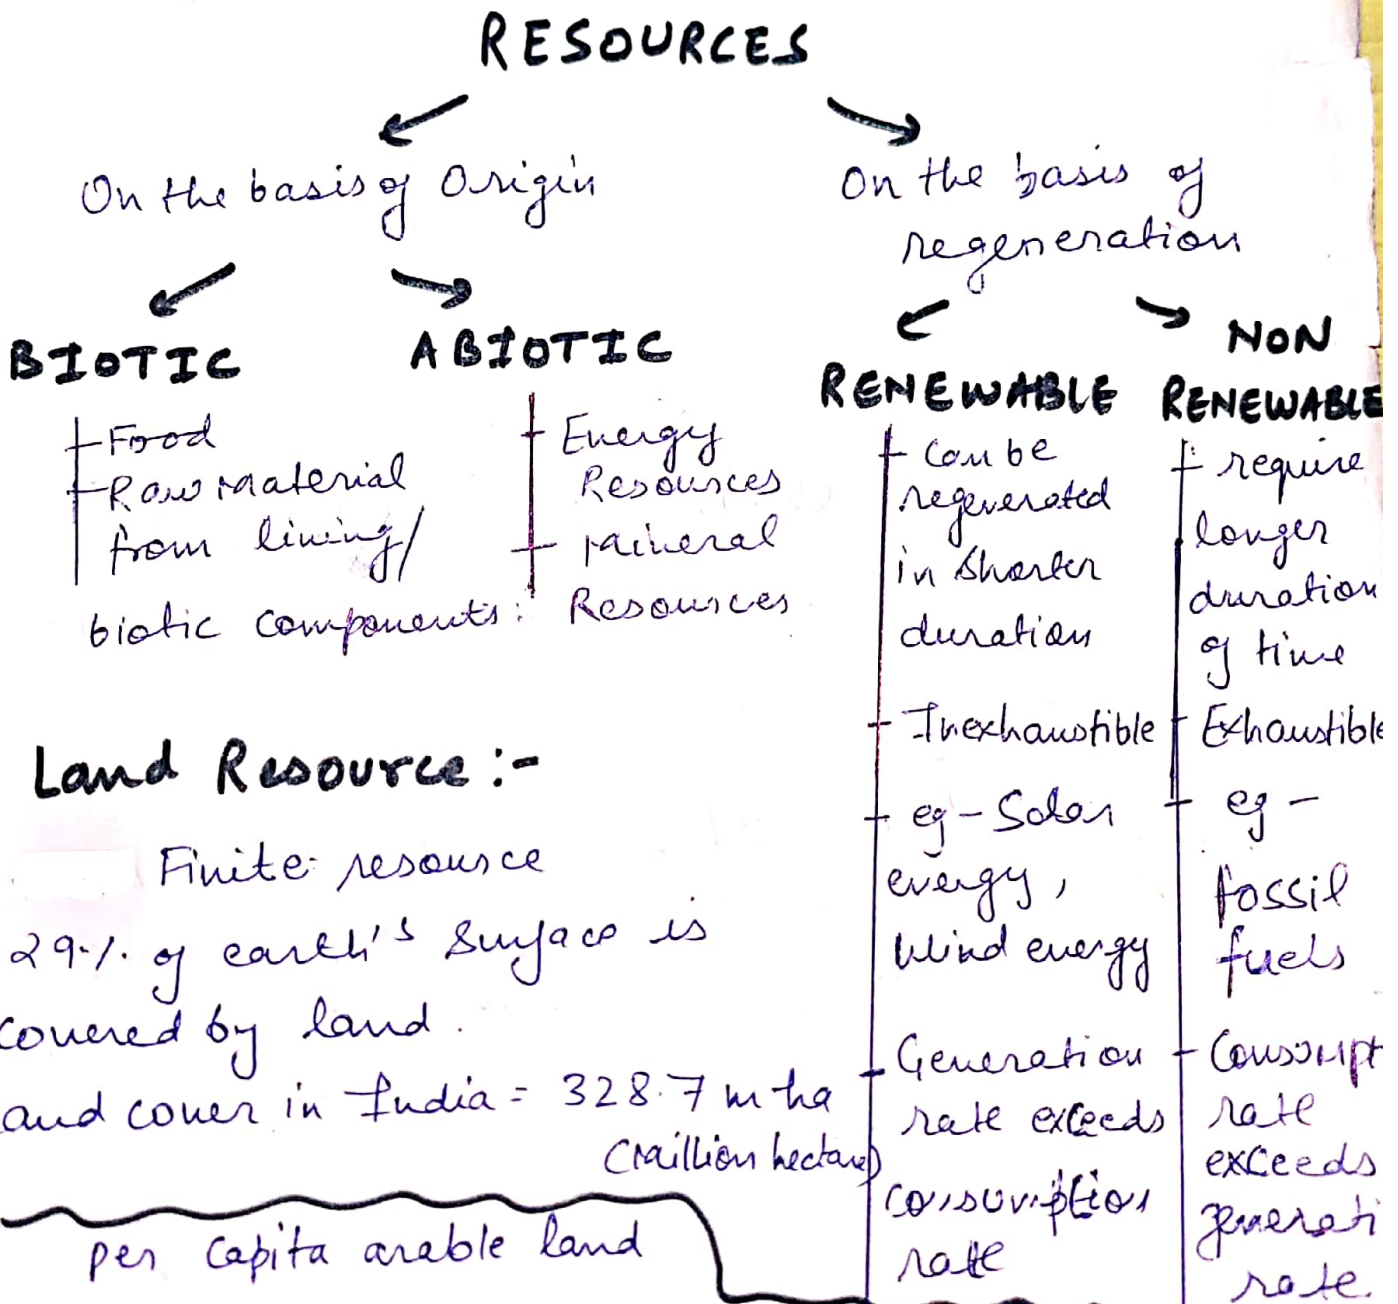 RESOURCES
On the basis of Origin
BIOTIC
Food
Raw Material
from living/
biotic components.
ABIOTIC
Energy
Resources
Mineral
Resources
On the basis of
regeneration
RENEWABLE
can be
regenerated
in shorter
duration
Inexhaustible
eg - Solar
energy,
Wind energy
Generation
rate exceeds
consumption
rate
NON
RENEWABLE
require
longer
duration
of time
Exhaustible
eg -
fossil
fuels
Consumpt
rate
exceeds
generati
rate.
Land Resource :-
Finite resource
29% of earth's surface is
covered by land.
and cover in India = 328.7 m ha
(million hectare)
per capita arable land